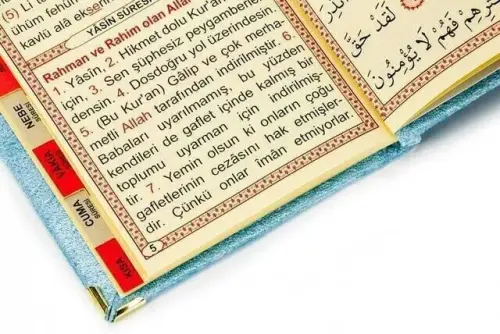 (5) Li t
ühüm fehüm
kavlü alâ ekseri
YASİN SURESİ
Rahman ve Rahim olan Alla
1. Yâsin. 2. Hikmet dolu Kur'an
için, 3. Sen şüphesiz peygamberle
densin. 4. Dosdoğru yol üzerindesin.
5. (Bu Kur'an) Gâlip ve çok merha-
metli Allah tarafından indirilmiştir. 6.
Babaları uyarılmamış, bu yüzden
kendileri de gaflet içinde kalmış bir
toplumu uyarman için indirilmiş-
tir. 7. Yemin olsun ki onların çoğu
gafletlerinin cezâsını hak etmişler-
dir. Çünkü onlar îmân etmiyorlar.
5
NEBE
SURESİ
VAKIA
CUMA
SURESİ
KISA
لَقَدْ حَقَّ
فَهُمْ لَا يُؤْمِنُونَ